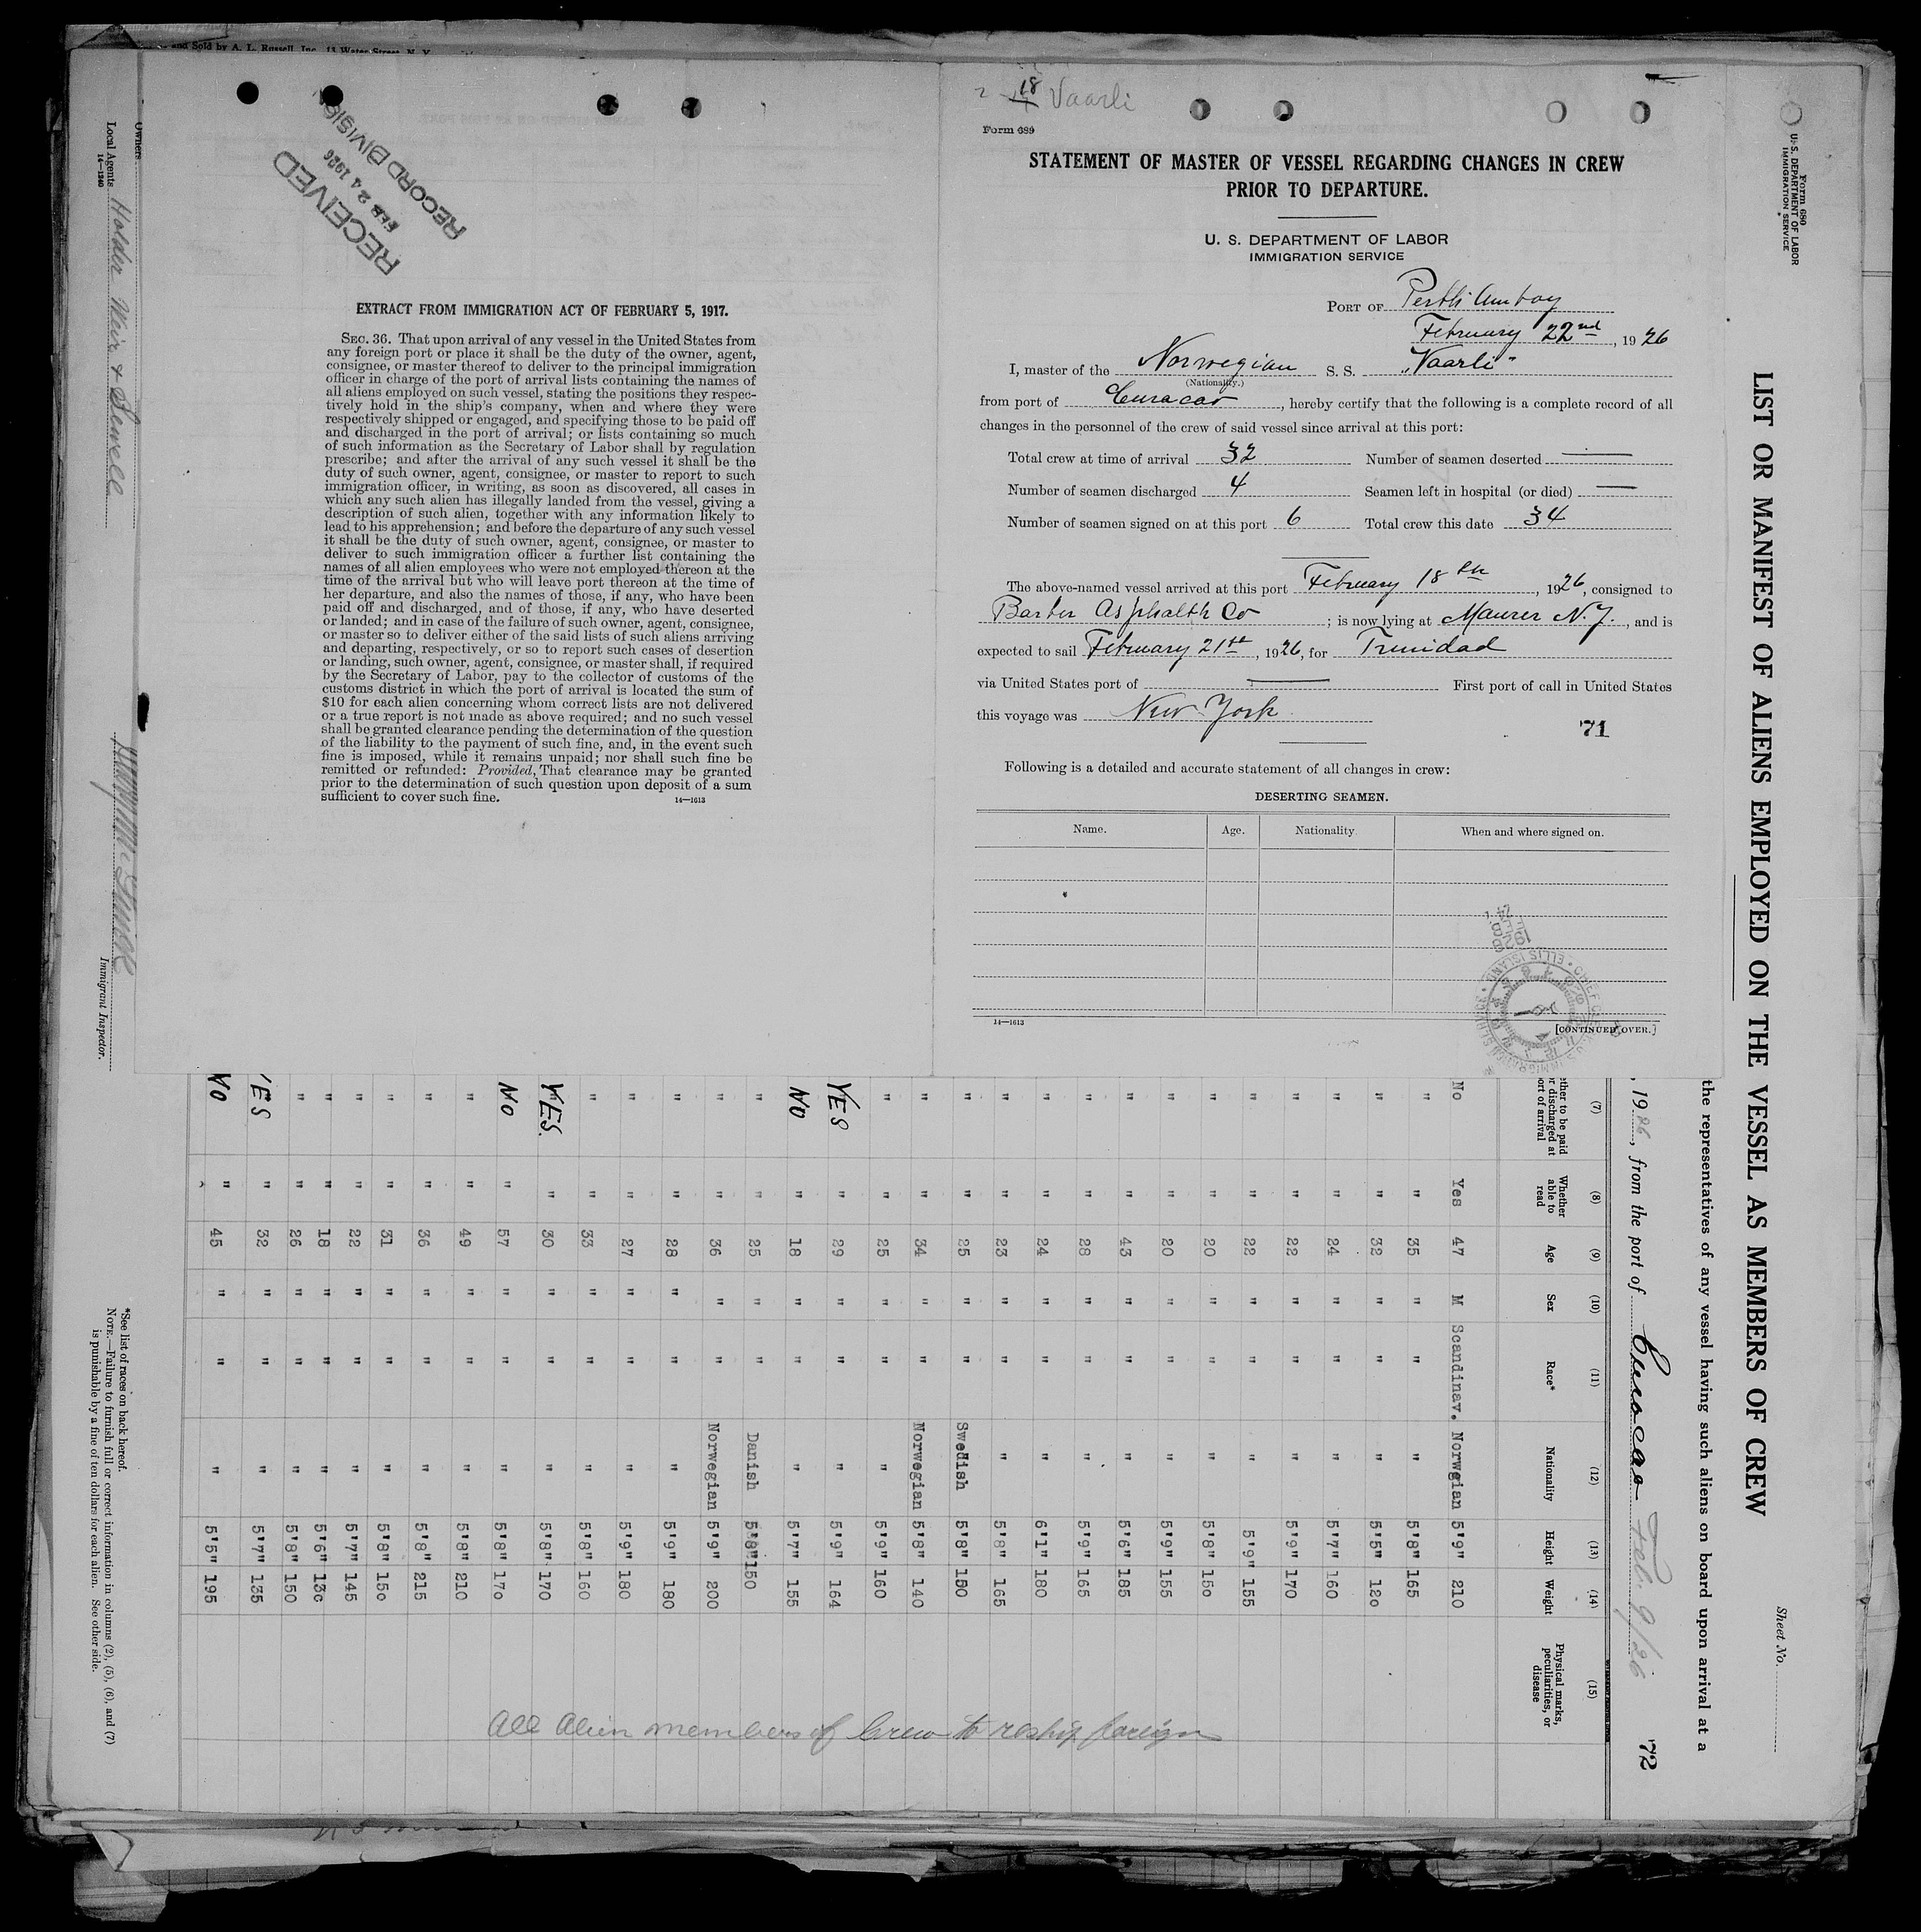 and Sold by A. L. Russell, Inc. 13 Water Street, N. Y.
Owners
Local Agents Holder Weir & Sewell
14—1240
Immigrant Inspector.
RECEIVED
FEB 24 1926
RECORD DIVISIO
EXTRACT FROM IMMIGRATION ACT OF FEBRUARY 5, 1917.
SEC. 36. That upon arrival of any vessel in the United States from
any foreign port or place it shall be the duty of the owner, agent,
consignee, or master thereof to deliver to the principal immigration
officer in charge of the port of arrival lists containing the names of
all aliens employed on such vessel, stating the positions they respec-
tively hold in the ship's company, when and where they were
respectively shipped or engaged, and specifying those to be paid off
and discharged in the port of arrival; or lists containing so much
of such information as the Secretary of Labor shall by regulation
prescribe; and after the arrival of any such vessel it shall be the
duty of such owner, agent, consignee, or master to report to such
immigration officer, in writing, as soon as discovered, all cases in
which any such alien has illegally landed from the vessel, giving a
description of such alien, together with any information likely to
lead to his apprehension; and before the departure of any such vessel
it shall be the duty of such owner, agent, consignee, or master to
deliver to such immigration officer a further list containing the
names of all alien employees who were not employed thereon at the
time of the arrival but who will leave port thereon at the time of
her departure, and also the names of those, if any, who have been
paid off and discharged, and of those, if any, who have deserted
or landed; and in case of the failure of such owner, agent, consignee,
or master so to deliver either of the said lists of such aliens arriving
and departing, respectively, or so to report such cases of desertion
or landing, such owner, agent, consignee, or master shall, if required
by the Secretary of Labor, pay to the collector of customs of the
customs district in which the port of arrival is located the sum of
$10 for each alien concerning whom correct lists are not delivered
or a true report is not made as above required; and no such vessel
shall be granted clearance pending the determination of the question
of the liability to the payment of such fine, and, in the event such
fine is imposed, while it remains unpaid; nor shall such fine be
remitted or refunded: Provided, That clearance may be granted
prior to the determination of such question upon deposit of a sum
sufficient to cover such fine.
14—1613
18 Vaarli
Form 689
STATEMENT OF MASTER OF VESSEL REGARDING CHANGES IN CREW
PRIOR TO DEPARTURE.
U. S. DEPARTMENT OF LABOR
IMMIGRATION SERVICE
PORT OF Perth Amboy
February 22nd, 1926
I, master of the Norwegian S. S. „Vaarli"
(Nationality.)
from port of Curacao, hereby certify that the following is a complete record of all
changes in the personnel of the crew of said vessel since arrival at this port:
Total crew at time of arrival 32 Number of seamen deserted —
Number of seamen discharged 4 Seamen left in hospital (or died) —
Number of seamen signed on at this port 6 Total crew this date 34
The above-named vessel arrived at this port February 18th, 1926, consigned to
Barber Asphalth Co; is now lying at Maurer N.J., and is
expected to sail February 21st, 1926, for Trinidad
via United States port of — First port of call in United States
this voyage was New York
71
Following is a detailed and accurate statement of all changes in crew:
DESERTING SEAMEN.
Name. Age. Nationality. When and where signed on.
14—1613
[CONTINUED OVER.]
1926
FEB
24
ELLIS ISLAND
Form 680
U. S. DEPARTMENT OF LABOR
IMMIGRATION SERVICE
Sheet No.
LIST OR MANIFEST OF ALIENS EMPLOYED ON THE VESSEL AS MEMBERS OF CREW
the representatives of any vessel having such aliens on board upon arrival at a
, 1926, from the port of Curacao Feb. 9/26
72
(7) (8) (9) (10) (11) (12) (13) (14) (15)
ether to be paid or discharged at ort of arrival
Whether able to read
Age
Sex
Race*
Nationality
Height
Weight
Physical marks, peculiarities, or disease
No Yes 47 M Scandinav. Norwgian 5'9" 210
" " 35 " " " 5'8" 165
" " 32 " " " 5'5" 120
" " 24 " " " 5'7" 160
" " 22 " " " 5'9" 170
" " 22 " " " 5'9" 155
" " 20 " " " 5'8" 150
" " 20 " " " 5'9" 155
" " 43 " " " 5'6" 185
" " 28 " " " 5'9" 165
" " 24 " " " 6'1" 180
" " 23 " " " 5'8" 165
" " 25 " " Swedish 5'8" 150
" " 34 " " Norwegian 5'8" 140
" " 25 " " " 5'9" 160
YES " 29 " " " 5'9" 164
NO " 18 " " " 5'7" 155
" " 25 " " Danish 5'8" 150
" " 36 " " Norwegian 5'9" 200
" " 28 " " " 5'9" 180
" " 27 " " " 5'9" 180
" " 33 " " " 5'8" 160
YES. " 30 " " " 5'8" 170
NO " 57 " " " 5'8" 170
" " 49 " " " 5'8" 210
" " 36 " " " 5'8" 215
" " 31 " " " 5'8" 150
" " 22 " " " 5'7" 145
" " 18 " " " 5'6" 130
" " 26 " " " 5'8" 150
YES " 32 " " " 5'7" 135
NO " 45 " " " 5'5" 195
All Alien members of Crew to reship foreign
*See list of races on back hereof.
NOTE.—Failure to furnish full or correct information in columns (2), (5), (6), and (7)
is punishable by a fine of ten dollars for each alien. See other side.